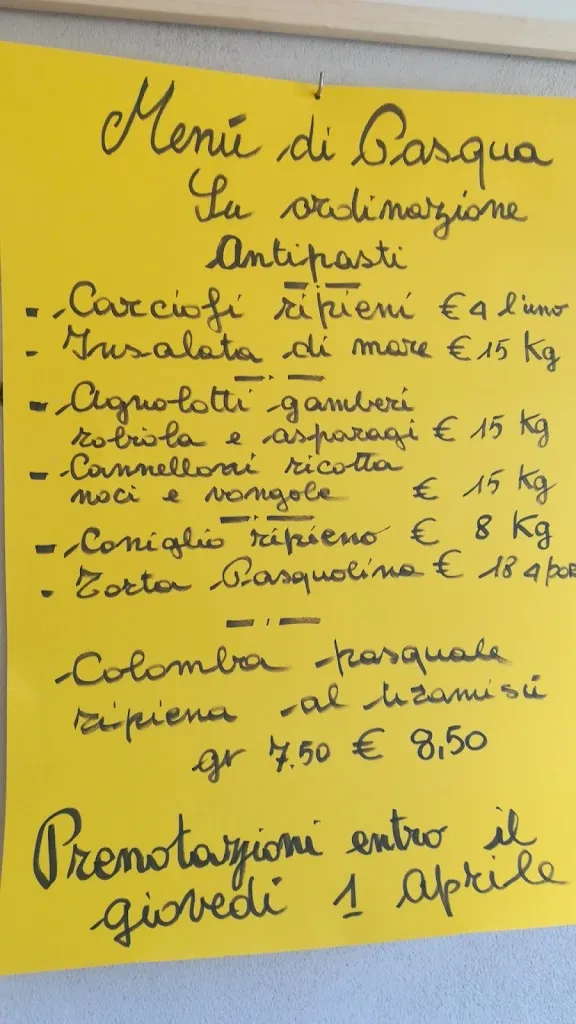 Menú di Pasqua
Su ordinazione
Antipasti
- Carciofi ripieni € 4 l'uno
- Insalata di mare € 15 Kg
- Agnolotti gamberi
robiola e asparagi € 15 Kg
- Cannelloni ricotta
noci e vongole € 15 Kg
- Coniglio ripieno € 8 Kg
- Torta Pasqualina € 18 4 por
Colomba pasquale
ripiena al tiramisú
gr 7.50 € 8,50
Prenotazioni entro il
giovedí 1 Aprile